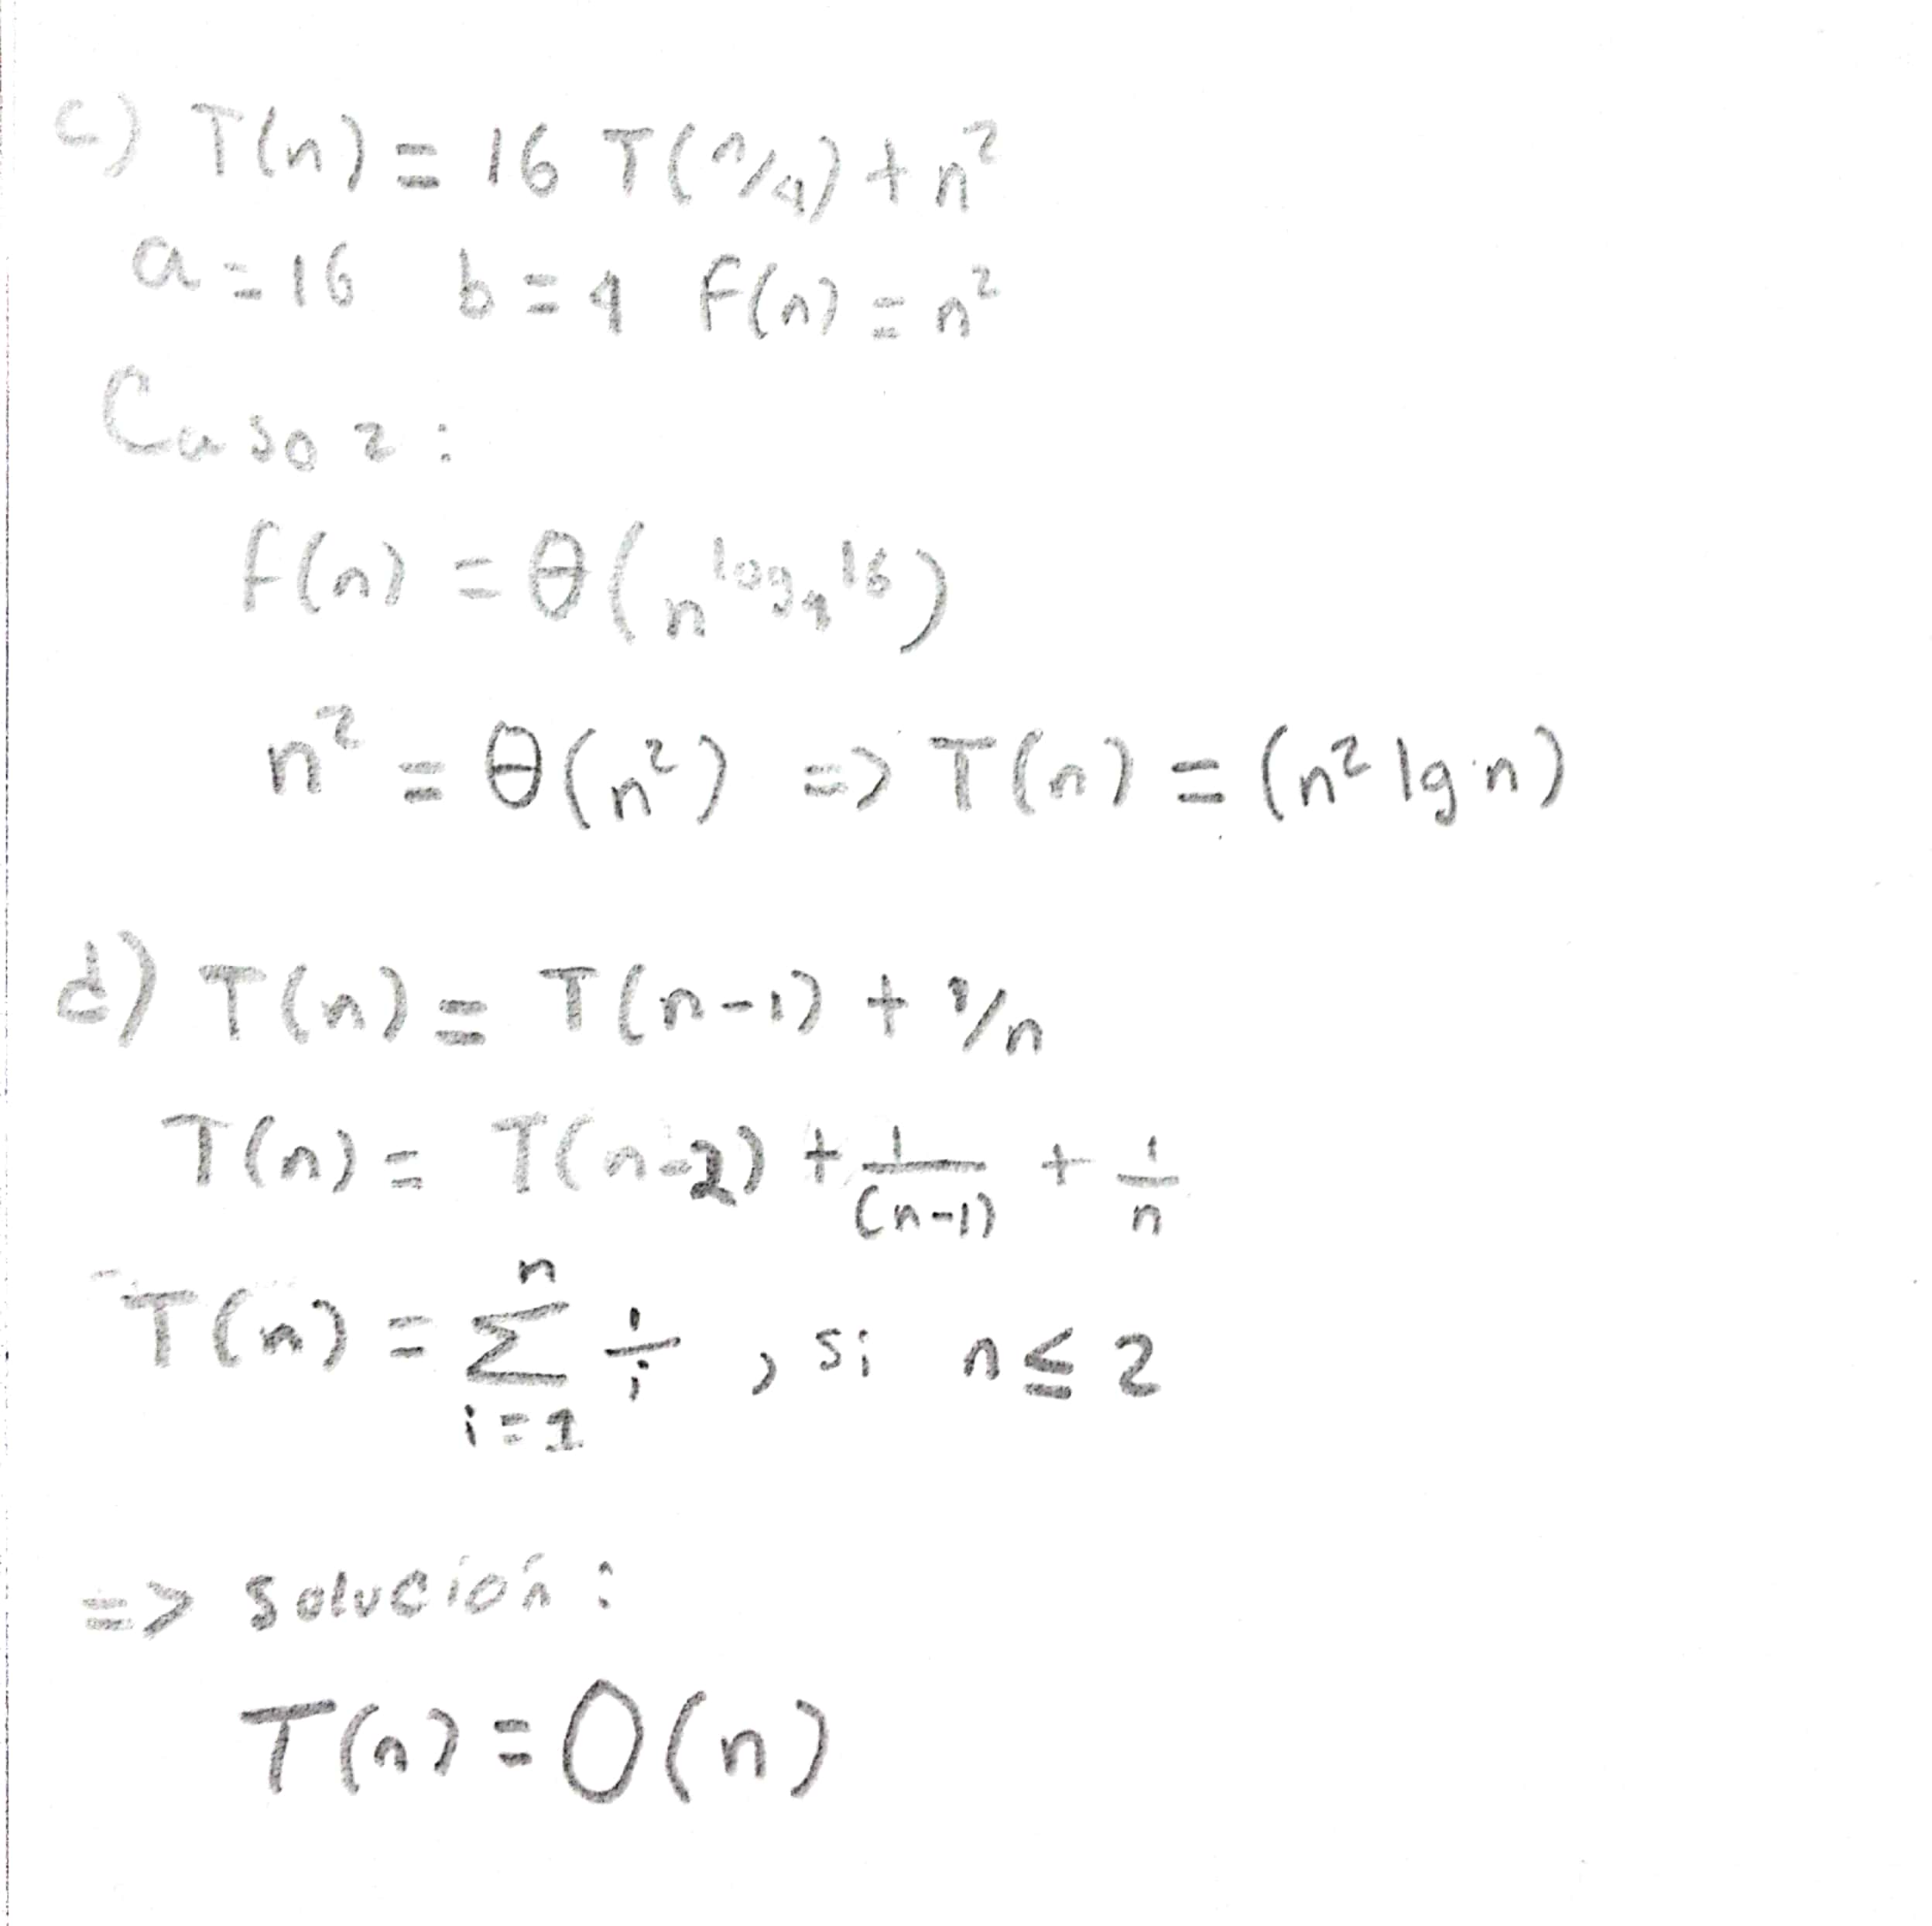 c) T(n) = 16 T(n/4) + n²
a = 16 b = 4 f(n) = n²
Caso 2 :
f(n) = θ(n^log₄16)
n² = θ(n²) => T(n) = (n² lg n)
d) T(n) = T(n-1) + 1/n
T(n) = T(n-2) + 1/(n-1) + 1/n
T(n) = Σ_{i=1}^{n} 1/i , si n ≤ 2
=> solución :
T(n) = O(n)